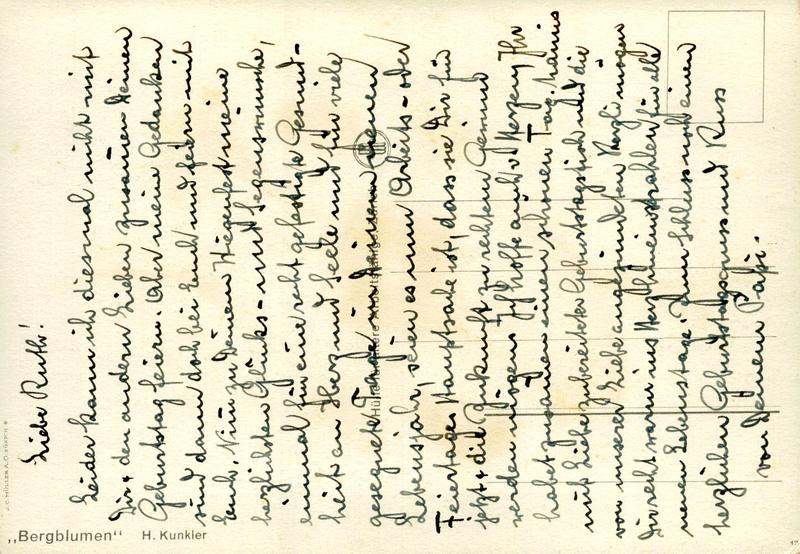 Liebe Ruth!
Leider kann ich diesmal nicht mit
Dir & den andern Lieben zusamen Deinen
Geburtstag feiern. Aber meine Gedanken
sind dann doch bei Euch und feiern mit
Euch. Nim zu Deinem Wiegenfest meine
herzlichsten Glücks- und Segenswünsche,
einmal für eine recht gefestigte Gesund-
heit an Herz und Seele und für viele
gesegnete Tage in Deinem neuen
Lebensjahr, seien es nun Arbeits- oder
Feiertage. Hauptsache ist, dass sie Dir für
jetzt & die Zukunft zu rechtem Gewinn
werden mögen. Ich hoffe auch v. Herzen, Ihr
habet zusamen einen schönen Tag.
mit Liebe zubereiteter Geburtstagstisch und die
von unserer Liebe angezündeten Kerzli mögen
Dir recht warm ins Herz hineinstrahlen für alle
neuen Lebenstage. Zum Schluss noch einen
herzlichen Geburtstagsgruss und Kuss
von Deinem Papi.
„Bergblumen“ H. Kunkler